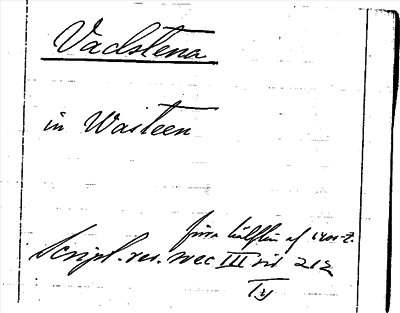 Vadstena
in Wasteen
förra hälften af 1400-t.
Script. rer. svec III sid 212
Ty